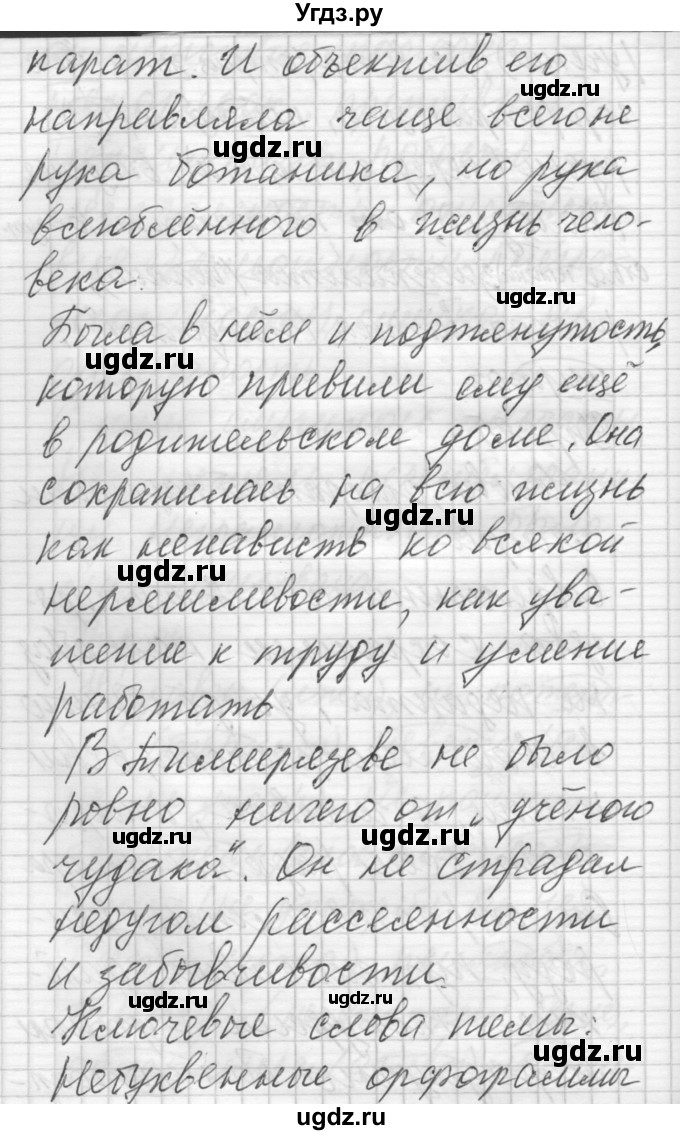 Угдз.ру
парат. И объектив его
направляла чаще всего не
рука ботаника, но рука
влюблённого в жизнь чело-
века.
Была в нём и подтянутость,
которую привили ему ещё
в родительском доме. Она
сохранилась на всю жизнь
как ненависть ко всякой
неряшливости, как ува-
жение к труду и умение
работать.
В Тимирязеве не было
ровно ничего от „учёного
чудака“. Он не страдал
недугом рассеянности
и забывчивости.
Ключевые слова темы:
Небуквенные орфограммы
ugdz.ru
ugdz.ru
ugdz.ru
ugdz.ru
ugdz.ru
ugdz.ru
ugdz.ru
ugdz.ru
ugdz.ru
ugdz.ru
ugdz.ru
ugdz.ru